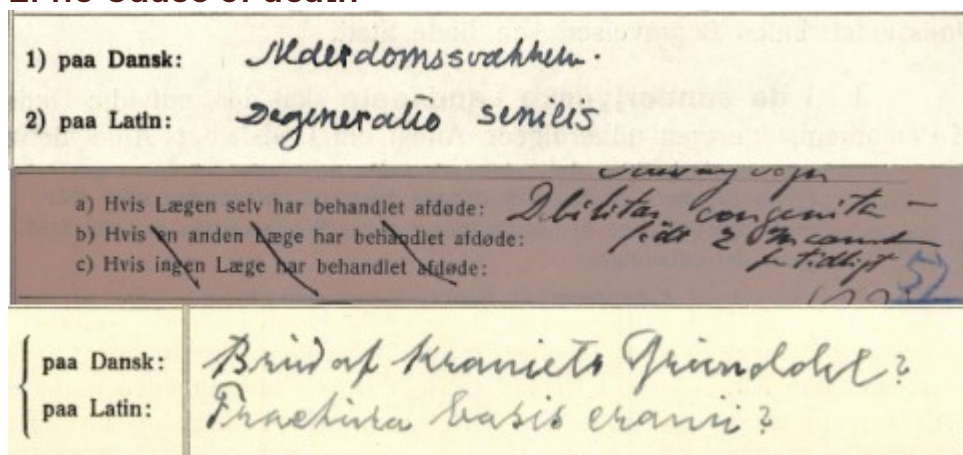 1) paa Dansk: Alderdomssvækkelse.
2) paa Latin: Degeneratio senilis
a) Hvis Lægen selv har behandlet afdøde: Debilitas congenita –
b) Hvis en anden Læge har behandlet afdøde: født 2
c) Hvis ingen Læge har behandlet afdøde: for tidligt
paa Dansk: Brud af Kraniets Grunddel?
paa Latin: Fractura basis cranii?